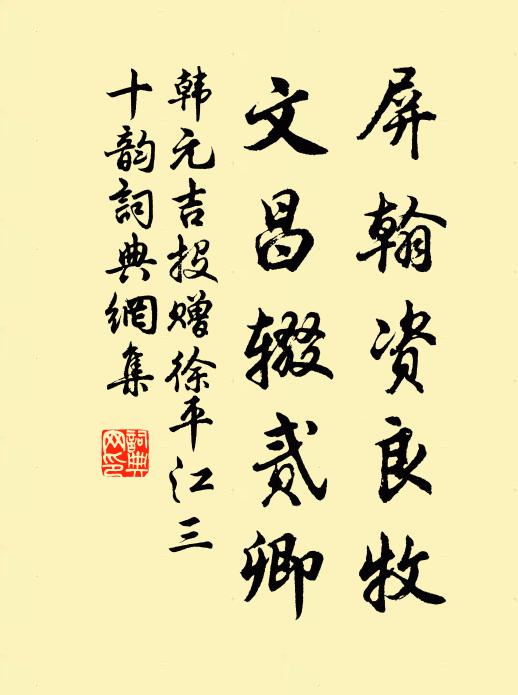 屏翰资良牧
文昌辍贰卿
韩元吉投赠徐平江三
十韵詞典網集
詞典
网印